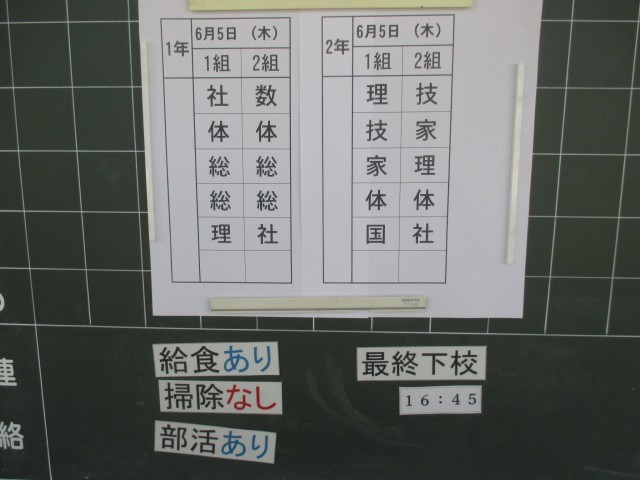 1年 6月5日 (木)
1組 2組
社 数
体 体
総 総
総 総
理 社
2年 6月5日 (木)
1組 2組
理 技
技 家
家 理
体 体
国 社
連
絡
給食あり
掃除なし
部活あり
最終下校
16:45